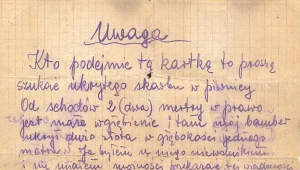 Uwaga
Kto podejmie tą kartkę to proszę
szukać ukrytego skarbu w piwnicy
Od schodów 2 (dwa) mertry w prawo
jest małe wgiębienie i tam mój bamber
ukrył dużo złota w giębokości jednego
metra. Ja byłem u niego niewolnikiem
i nie miałem możności wiadomości